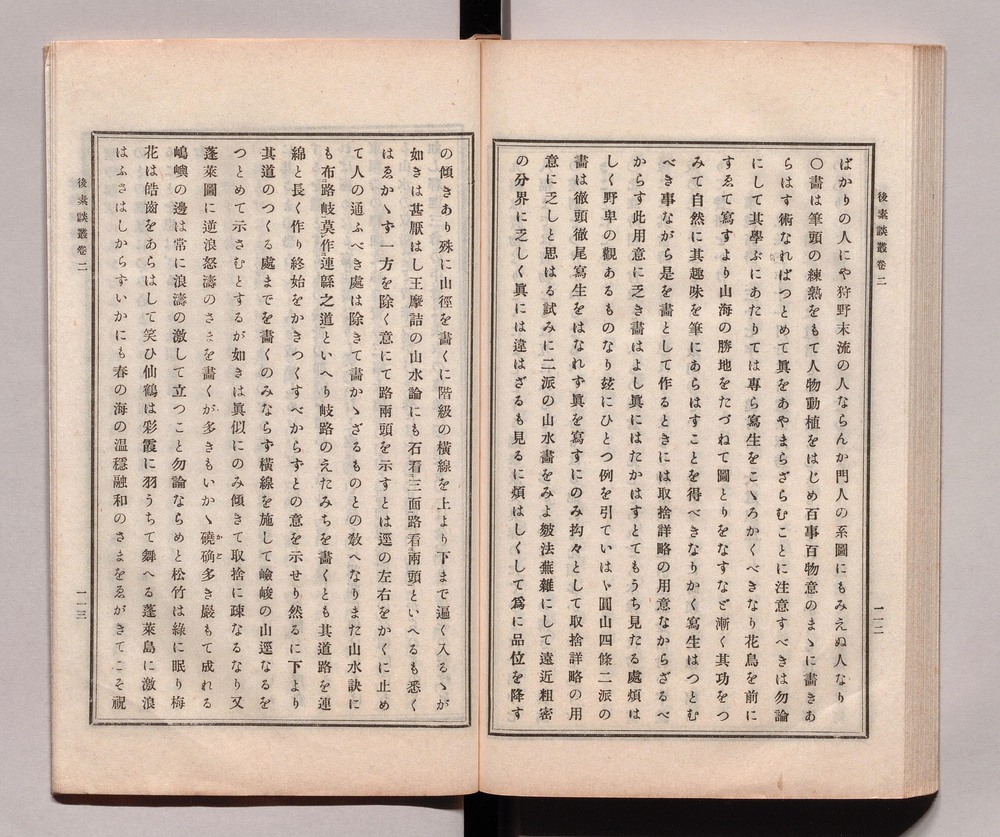 後素談叢卷二
一一二
ばかりの人にや狩野末流の人ならんか門人の系圖にもみえぬ人なり
〇畵は筆頭の練熟をもて人物動植をはじめ百事百物意のまゝに畵きあ
らはす術なればつとめて眞をあやまらざらむことに注意すべきは勿論
にして其學ぶにあたりては專ら寫生をこゝろかくべきなり花鳥を前に
すゑて寫すより山海の勝地をたづねて圖とりをなすなど漸く其功をつ
みて自然に其趣味を筆にあらはすことを得べきなりかく寫生はつとむ
べき事ながら是を畵として作るときには取捨詳略の用意なからざるべ
からす此用意に乏き畵はよし眞にはたかはすとてもうち見たる處煩は
しく野卑の觀あるものなり玆にひとつ例を引ていはゝ圓山四條二派の
畵は徹頭徹尾寫生をはなれず眞を寫すにのみ拘々として取捨詳略の用
意に乏しと思はる試みに二派の山水畵をみよ皴法蕪雜にして遠近粗密
の分界に乏しく眞には違はざるも見るに煩はしくして爲に品位を降す
の傾きあり殊に山徑を畵くに階級の橫線を上より下まで逼く入るゝが
如きは甚厭はし王摩詰の山水論にも石看三面路看兩頭といへるも悉く
はゑかゝず一方を除く意にて路兩頭を示すとは逕の左右をかくに止め
て人の通ふべき處は除きて畵かゝざるものとの敎へなりまた山水訣に
も布路岐莫作連緜之道といへり岐路のえたみちを畵くとも其道路を連
綿と長く作り終始をかきつくすべからずとの意を示せり然るに下より
其道のつくる處までを畵くのみならず橫線を施して嶮峻の山逕なるを
つとめて示さむとするが如きは眞似にのみ傾きて取捨に疎なるなり又
蓬萊圖に逆浪怒濤のさまを畵くが多きもいかゝ磽确かど多き巖もて成れる
嶋嶼の邊は常に浪濤の激して立つこと勿論ならめと松竹は綠に眠り梅
花は皓齒をあらはして笑ひ仙鶴は彩霞に羽うちて舞へる蓬萊島に激浪
はふさはしからずいかにも春の海の温穩融和のさまをゑがきてこそ祝
後素談叢卷二
一一三